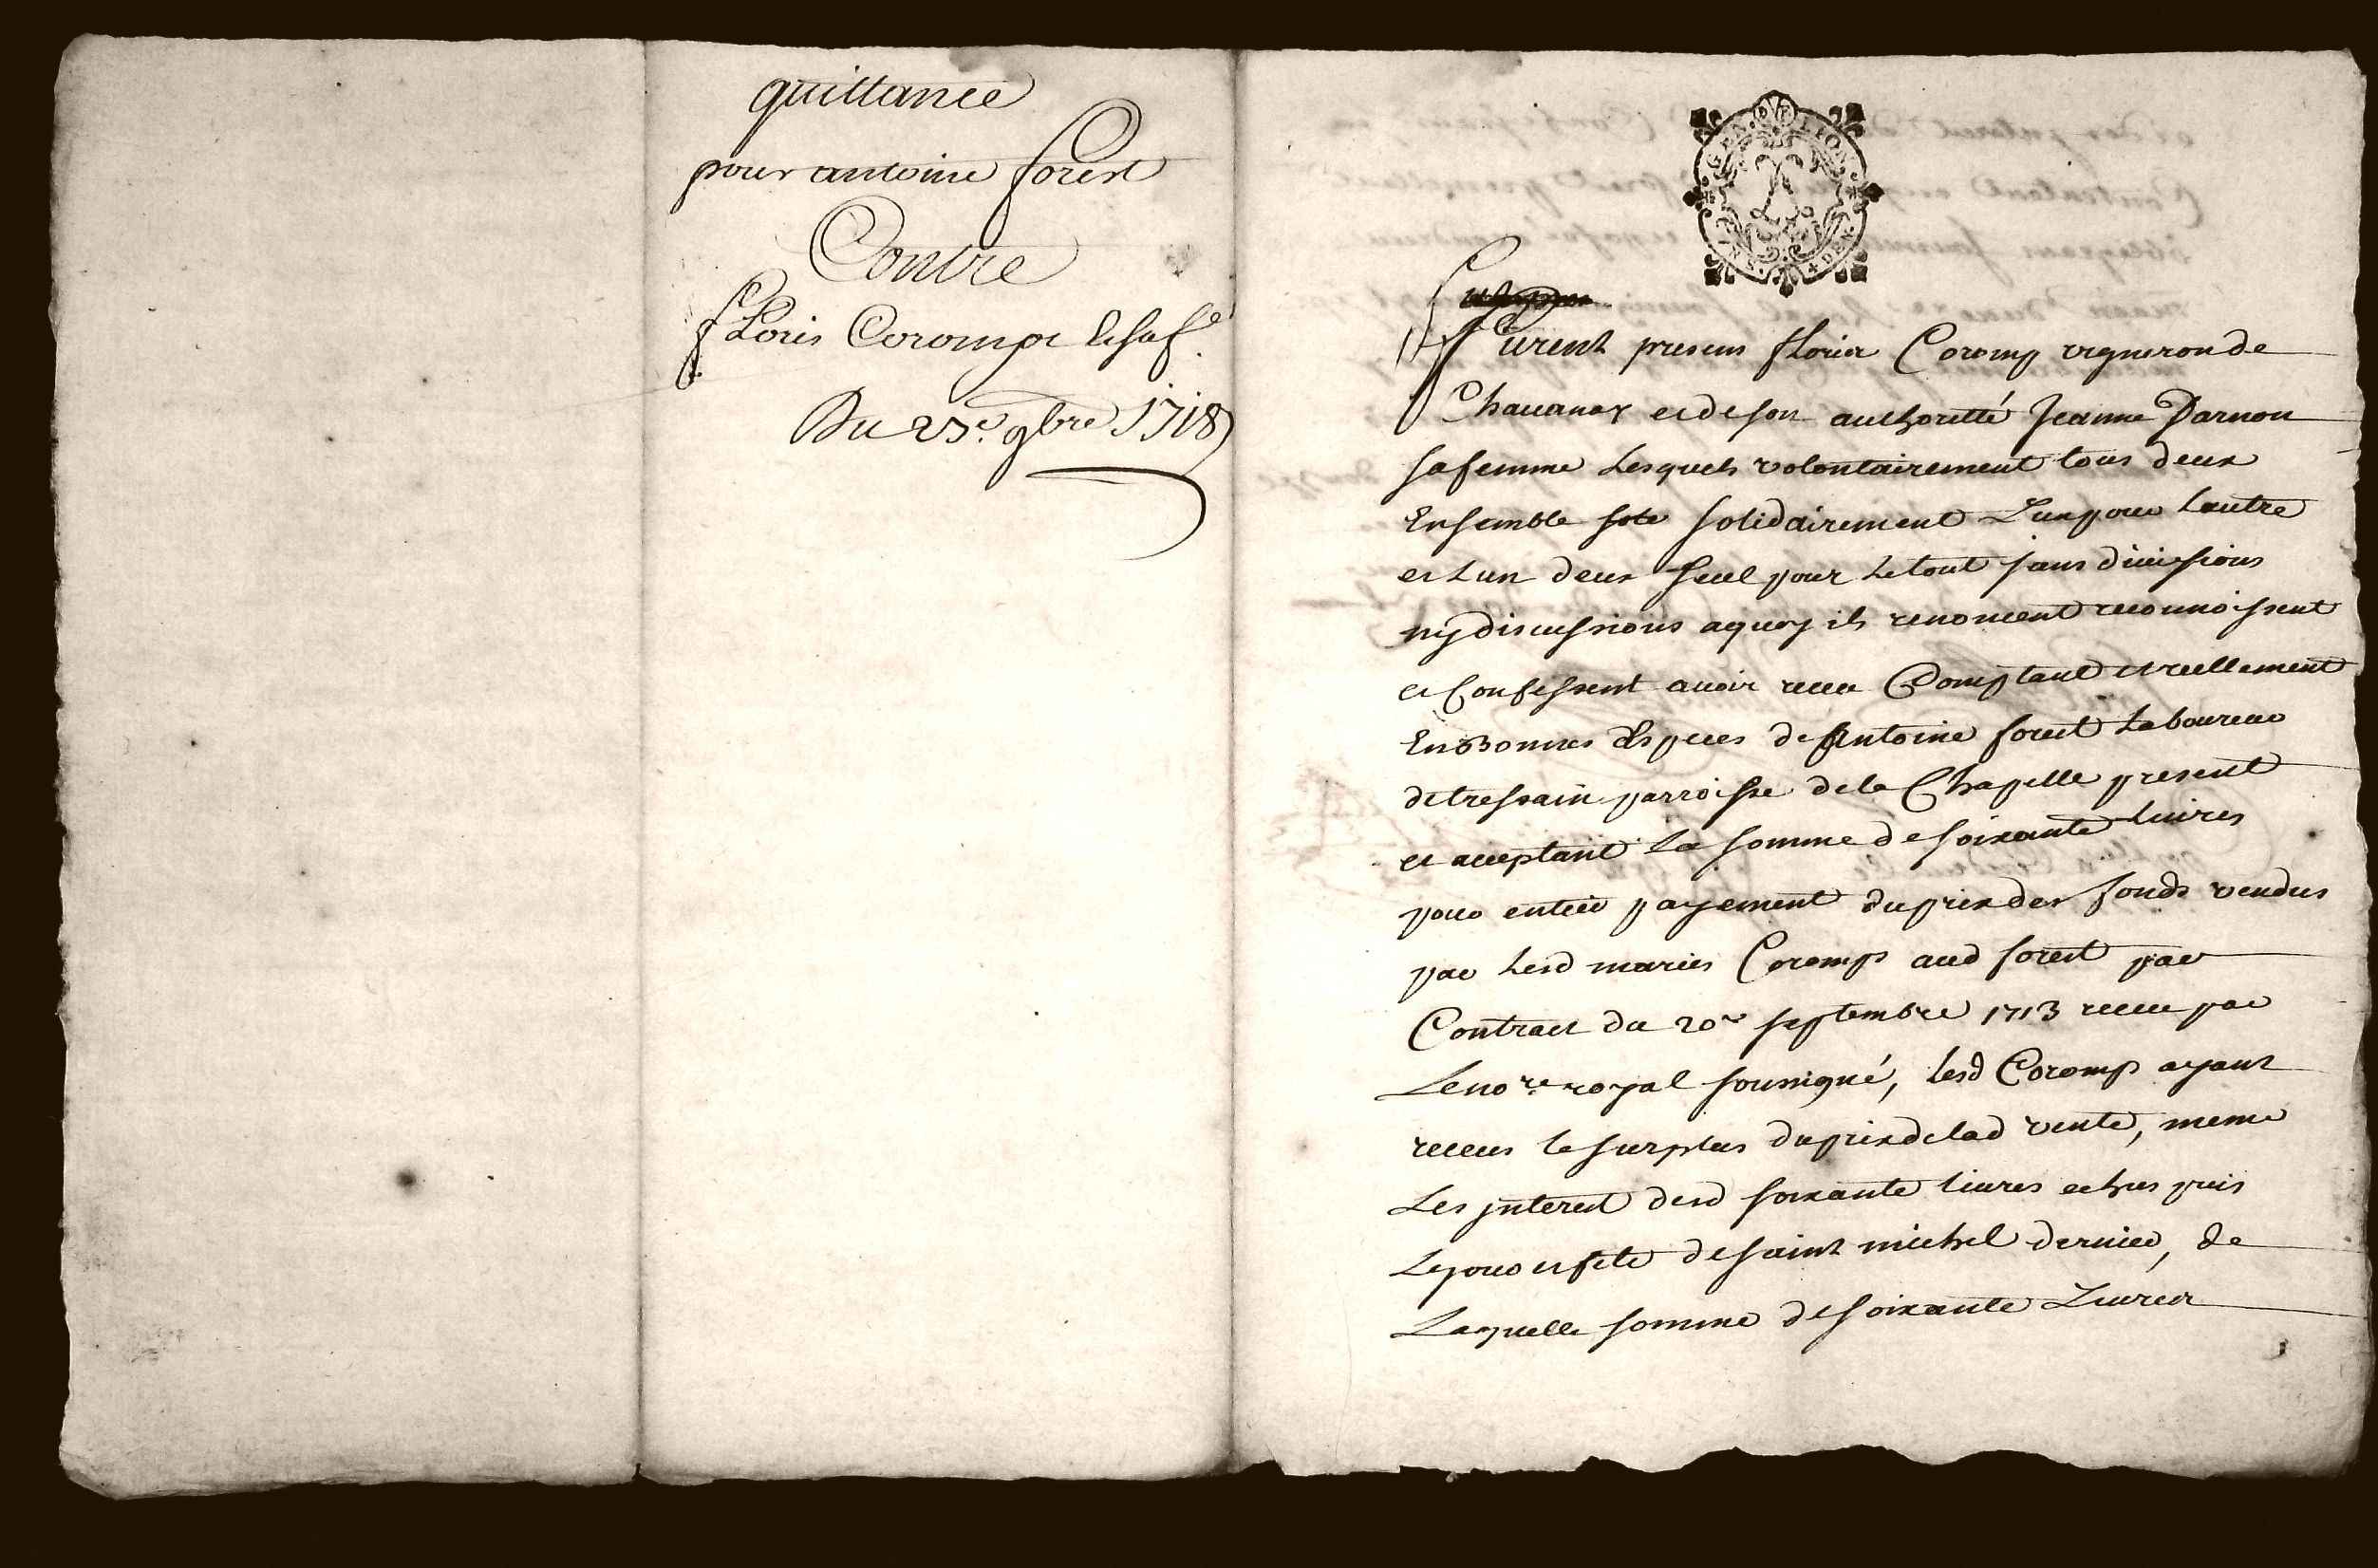 quittance
pour antoine forest
Contre
fLoris Coromps & sa fe
Du 23e. 9bre 1718
GEN. DE LION
DEN.
furent presens fLoris Coromp vigneron de
Chauanay et de son authoritté Jeanne Darnon
sa femme Lesquels volontairement tous deux
Ensemble sole solidairement L'un pour Lautre
et Lun deux seul pour Le tout sans diuisions
ny discussions a quoy ils renoncent reconnoissent
et Confessent auoir receu Comptant et reellement
En Bonnes Especes de Antoine forest Laboureur
de tressain parroisse de la Chapelle present
et acceptant La somme de soixante liures
pour entier payement du prix des fonds vendus
par Lesd mariés Coromps aud forest par
Contract du 20e septembre 1713 receu par
Le nore royal soussigné, Lesd Coromps ayant
receus le surplus du prix de lad vente, meme
Les jnterest desd soixante liures echus puis
Le jour et fete de saint michel dernier, de
Laquelle somme de soixante Liures